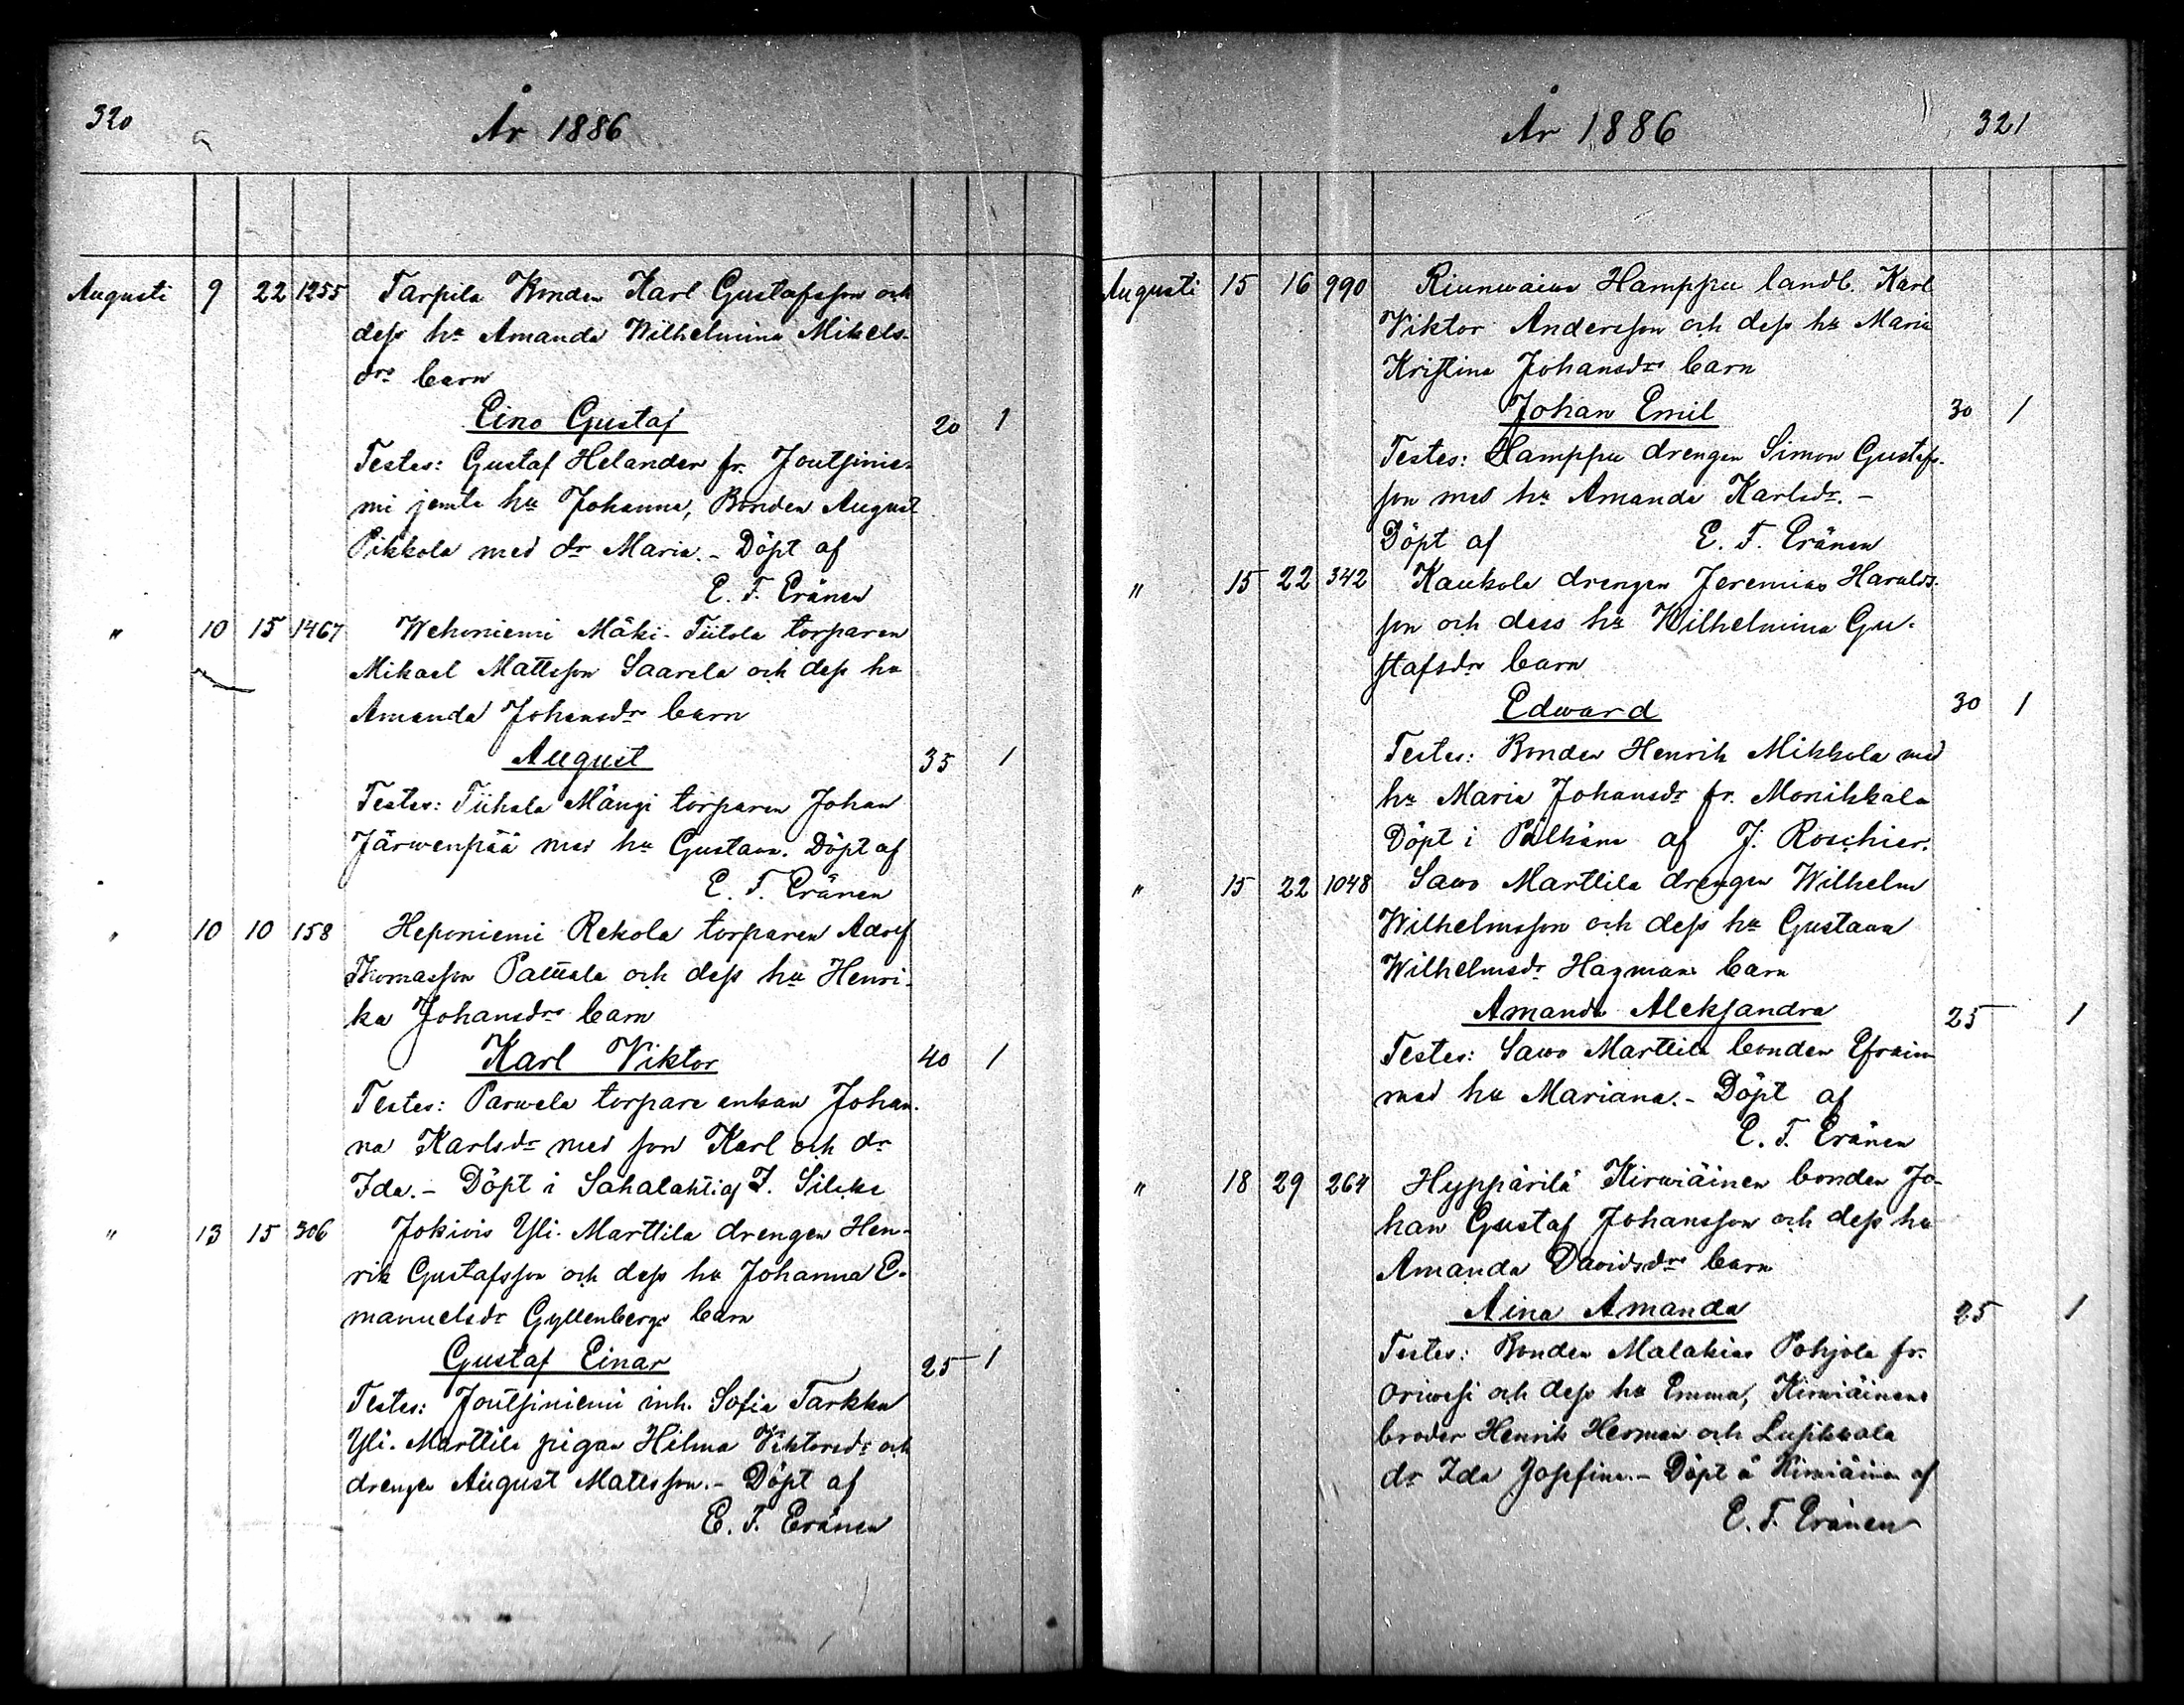 320
År 1886
Augusti 9 22 1255 Tarpila Bonden Karl Gustafsson och
dess hu Amanda Wilhelmina Mikels-
drs barn
Eino Gustaf 20 1
Testes: Gustaf Helander fr. Joutsinie-
mi jemte hu Johanna, Bonden August
Pikkola med dr Maria. - Döpt af
E. F. Eränen
" 10 15 1467 Wehoniemi Mäki-Tiitola torparen
Mikael Mattsson Saarela och dess hu
Amanda Johansdrs barn
August 35 1
Testes: Tiihala Mängi torparen Johan
Järwenpää med hu Gustava. Döpt af
E. F. Eränen
" 10 10 158 Heponiemi Rekola torparen Adolf
Thomasson och dess hu Henri-
ka Johansdrs barn
Karl Viktor 40 1
Testes: Parwela torpare enkan Johan-
na Karlsdr med son Karl och dr
Ida. - Döpt i Sahalahti af
" 13 15 306 Yli-Marttila drengen Hen-
rik Gustafsson och dess hu Johanna E-
manuelsdr Gyllenbergs barn
Gustaf Einar 25 1
Testes: Joutsiniemi inh. Sofia Tarkka
Yli-Marttila pigan Hilma Viktorsdr och
drengen August Mattsson. - Döpt af
E. F. Eränen
År 1886
321
Augusti 15 16 990 Hamppu landb. Karl
Viktor Andersson och dess hu Maria
Kristina Johansdrs barn
Johan Emil 30 1
Testes: Hamppu drengen Simon Gustafs-
son med hu Amanda Karlsdr. -
Döpt af E. F. Eränen
" 15 22 342 Kaukola drengen Jeremias Haralds-
son och dess hu Wilhelmina Gu-
stafsdrs barn
Edward 30 1
Testes: Bonden Henrik Mikkola med
hu Maria Johansdr fr. Monikkala
Döpt i Pälkäne af J. Roschier.
" 15 22 1048 Sawo Marttila drengen Wilhelm
Wilhelmsson och dess hu Gustava
Wilhelmsdr Hagmans barn
Amanda Aleksandra 25 1
Testes: Sawo Marttila bonden Efraim
med hu Mariana. - Döpt af
E. F. Eränen
" 18 29 264 Hyppärilä Kirwiäinen bonden Jo-
han Gustaf Johansson och dess hu
Amanda Davidsdrs barn
Aina Amanda 25 1
Testes: Bonden Malakias Pohjola fr.
Oriwesi och dess hu Emma, Kirwiäinens
broder Henrik Herman och
dr Ida Josefina. - Döpt å Kirwiäinen af
E. F. Eränen